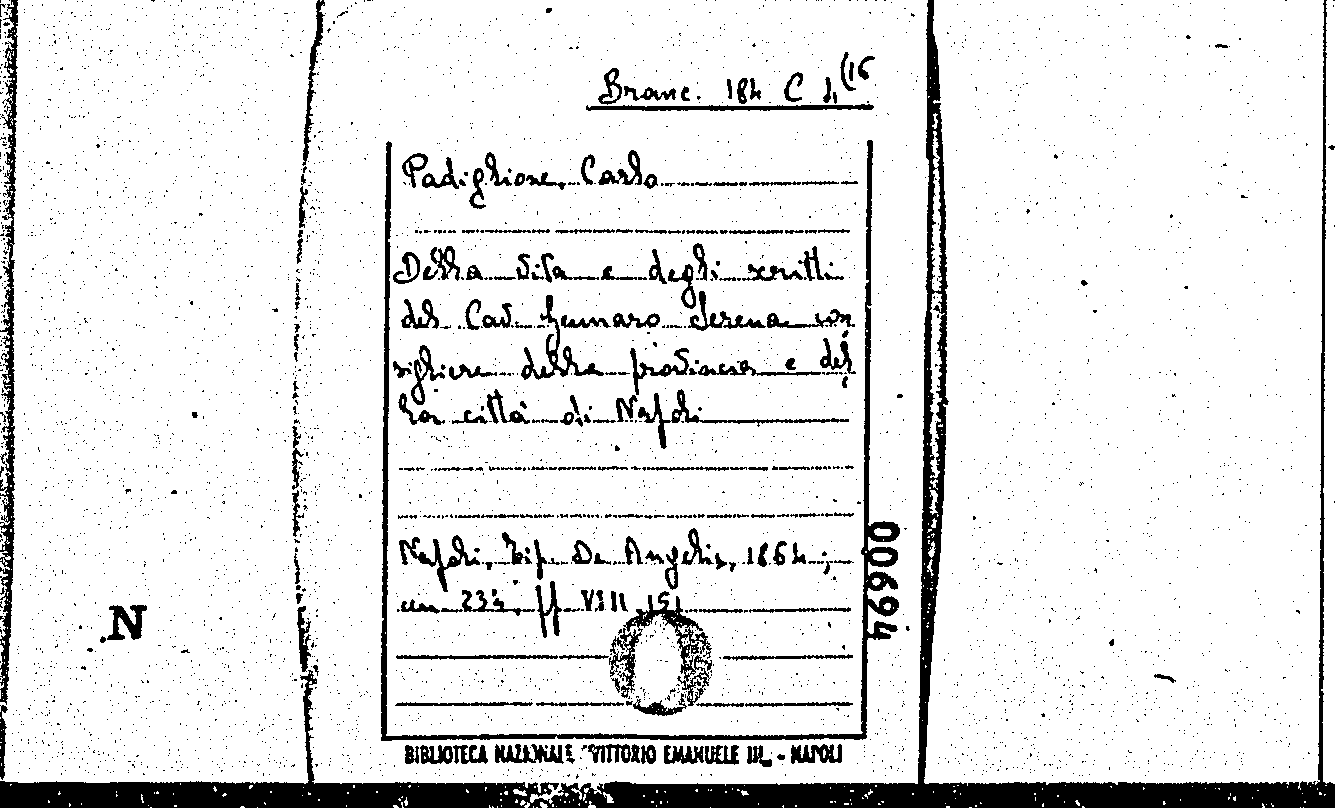 Branc. 184 C 4 (16
Padiglione, Carlo
Della vita e degli scritti
del Cav. Gennaro Serena con
sigliere della provincia e del
la città di Napoli
Napoli, Tip. De Angelis, 1864;
cm. 23½, pp. VIII, 151
00694
N
BIBLIOTECA NAZIONALE "VITTORIO EMANUELE III„ - NAPOLI